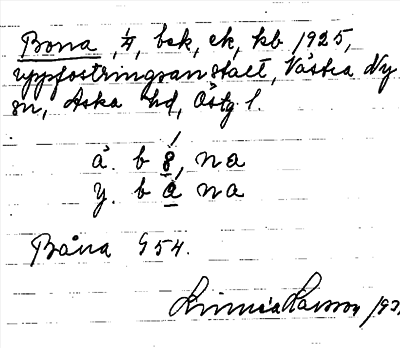 Bona, 1/4, bek, ek, kb 1925,
uppfostringsanstalt, Västra Ny
sn, Aska hd, Östg l.
å. b 8, na
y. b å na
Båna G 54.
Linnéa Larsson 193